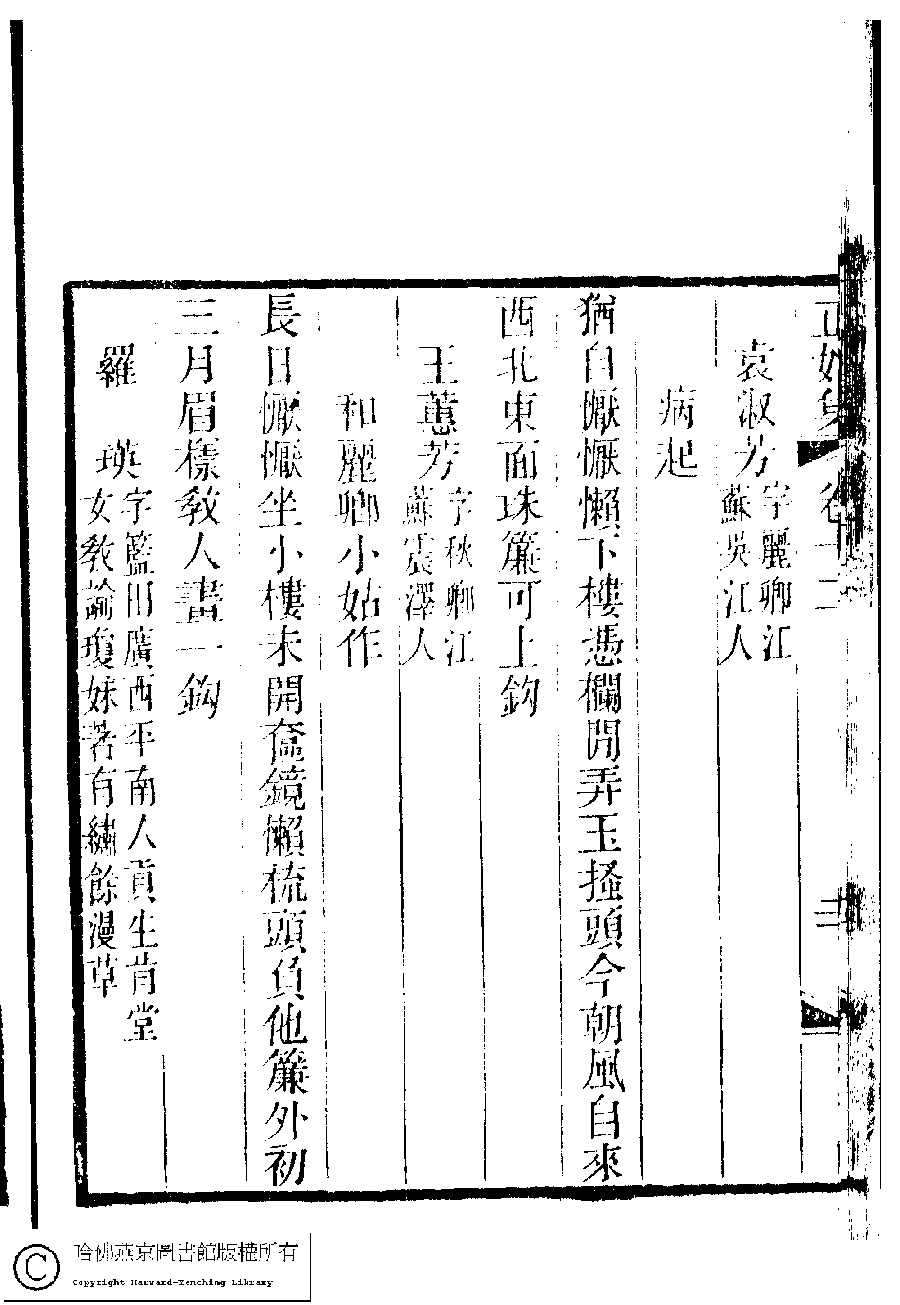 正始集 卷十二
袁淑芳 字麗卿江
蘇吳江人
病起
猶自懨懨懶下樓憑欄閒弄玉搔頭今朝風自來
西北東面珠簾可上鈎
王蕙芳 字秋卿江
蘇震澤人
和麗卿小姑作
長日懨懨坐小樓未開奩鏡懶梳頭負他簾外初
三月眉樣教人畫一鈎
羅 瑛 字籃田廣西平南人貢生肯堂
女教諭瓊妹著有繡餘漫草
哈佛燕京圖書館版權所有
Copyright Harvard-Yenching Library